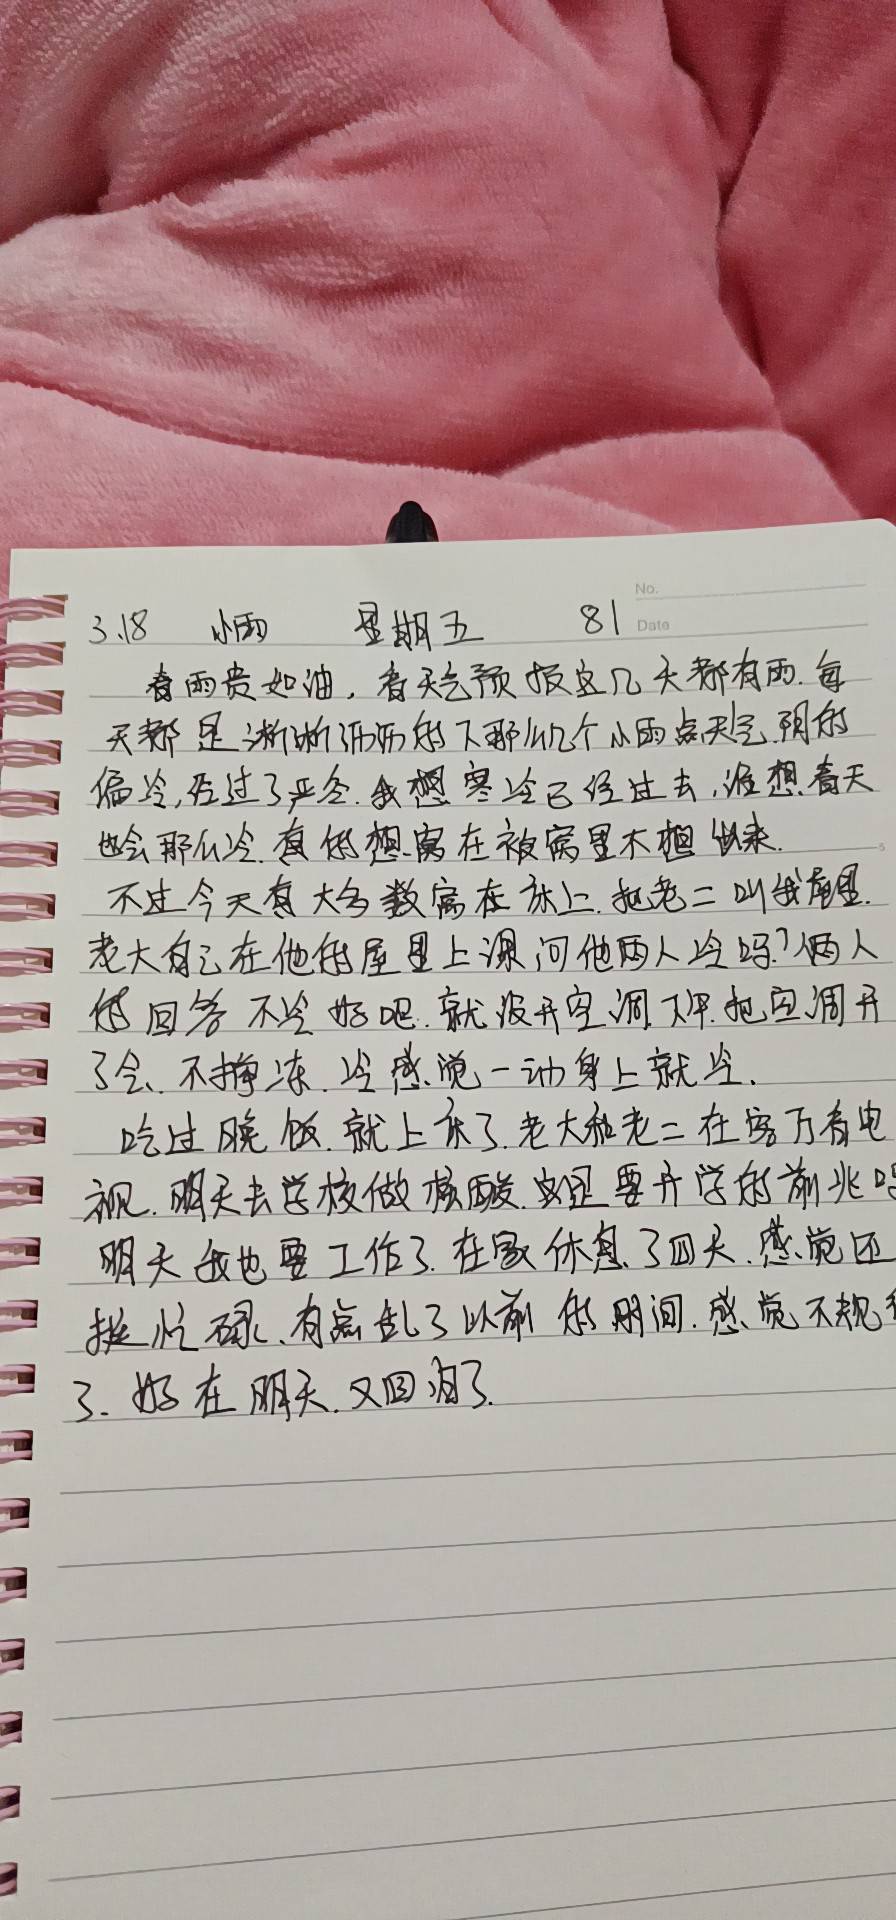 No.
3.18 小雨 星期五 81 Date
春雨贵如油，看天气预报这几天都有雨.每
天都是淅淅沥沥的下那么几个小雨点天气.阴的
偏冷,经过了严冬.我想寒冷已经过去,谁想春天
也会那么冷.真的想窝在被窝里不想出来.
不过今天有大多数窝在床上.把老二叫我屋里.
老大自己在他的屋里上课问他两人冷吗?俩人
的回答不冷好吧.就没开空调.下午.把空调开
了会.不挣冻.冷感觉一动身上就冷.
吃过晚饭.就上床了.老大和老二在客厅看电
视.明天去学校做核酸.这是要开学的前兆吗
明天我也要工作了.在家休息了四天.感觉还
挺忙碌.有点乱了以前的时间.感觉不规律
了.好在明天.又回归了.